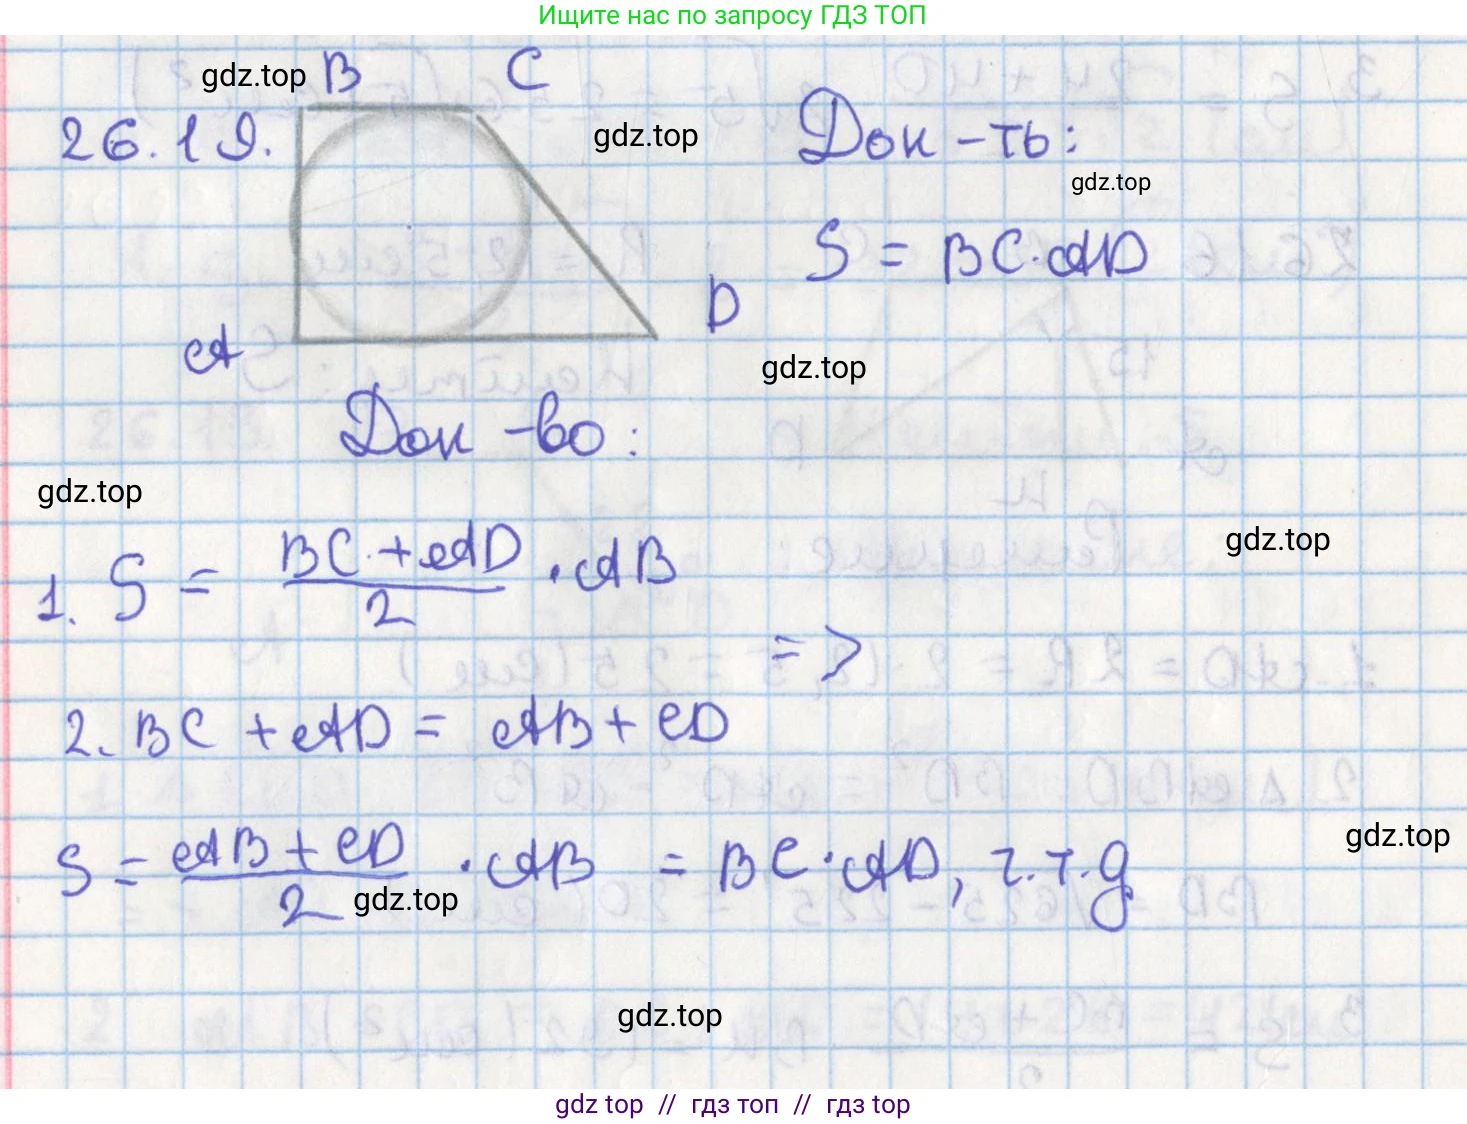 Ищите нас по запросу ГДЗ ТОП
gdz.top B C
26.19.
gdz.top
Док-ть:
gdz.top
S = BC·AD
D
A
gdz.top
Док-во:
gdz.top
gdz.top
1. S = (BC+AD)/2 · AB
=>
2. BC + AD = AB + CD
gdz.top
S = (AB + CD)/2 · AB = BC·AD, ч.т.д
gdz.top
gdz.top
gdz top // гдз топ // гдз top